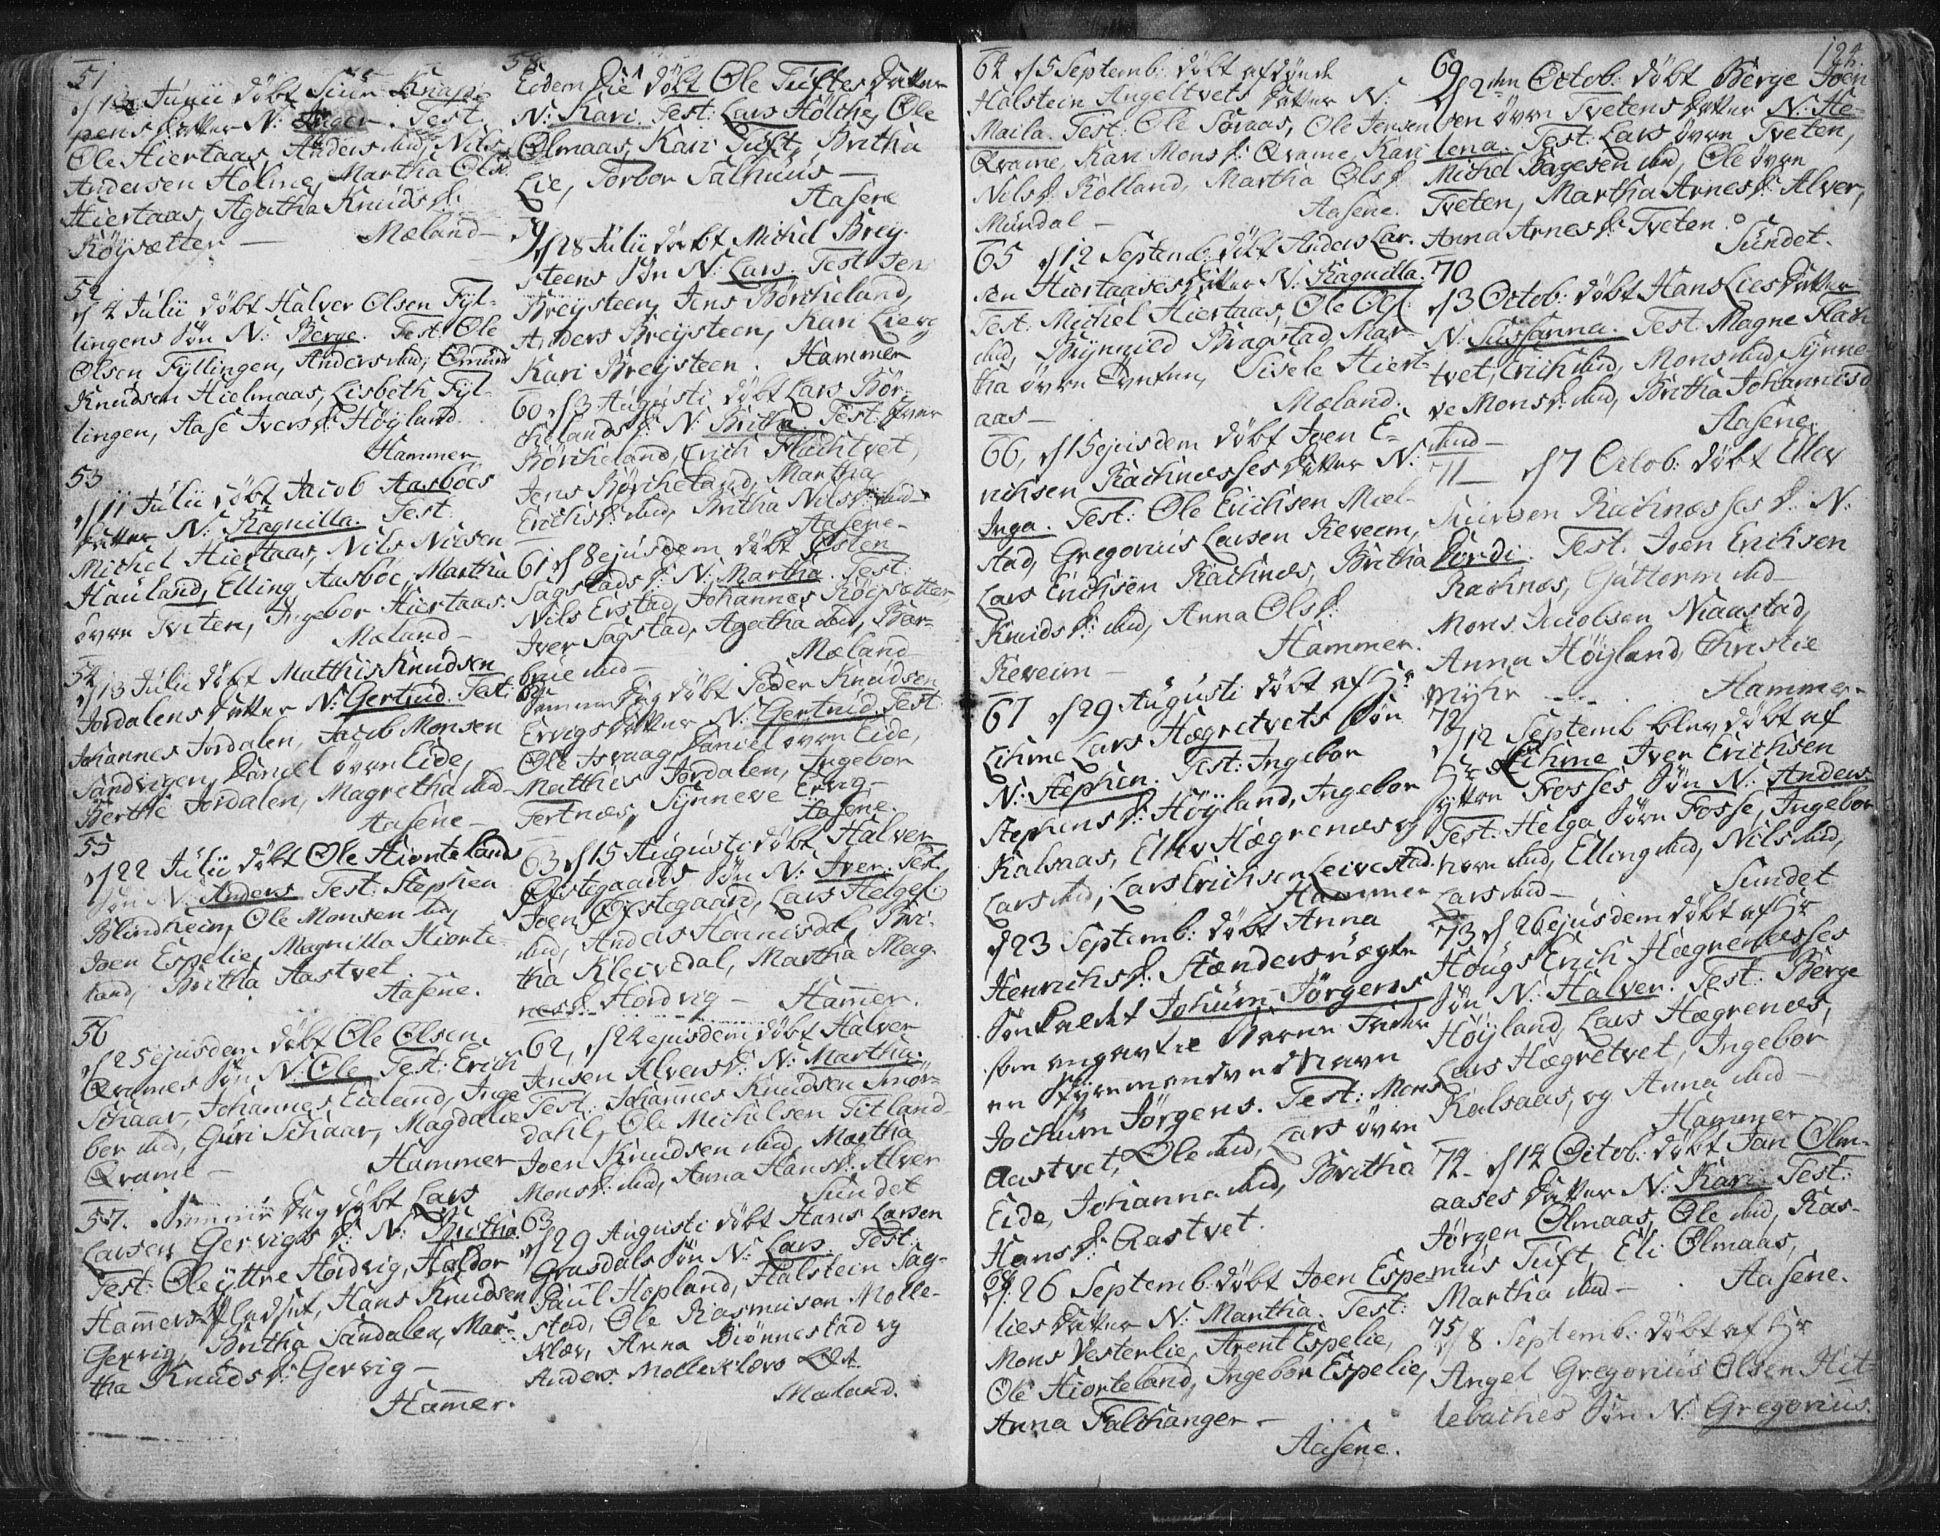 51
d 13 Junii döbt Siur Knap-
pens datter N: Test
Ole Hiertaas, Anders ibid, Nils
Andersen Holme, Martha Ols
Hiertaas, Agatha Knuds d:
Röysetter — Mæland
52
d 4 Julii döbt Halver Olsen Fyl-
lingens Sön N: Berge. Test: Ole
Olsen Fyllingen, Anders ibid,
Knudsen Hielmaas, Lisbeth Fyl-
lingen, Aase Ivers d: Höyland.
Hammer
53
d 11 Julii döbt Jacob Aasböes
datter N: Ragnilla. Test:
Michel Hiertaas, Nils Nilsen
Hauland, Elling Aasböe, Martha
övre Tveiten, Ingebor Hiertaas.
Mæland
54
d 13 Julii döbt Matthis Knudsen
Jordalens datter N: Gertrud. Test:
Johannes Jordalen, Jacob Monsen
Sandvigen, Daniel övre Eide,
Berthe Jordalen, Magretha ibid
Aasene —
55
d 22 Julii döbt Ole Hiortelands
Sön N: Anders. Test: Stephen
Blindheim, Ole Monsen ibid,
Joen Espelie, Magnilla Hiorte-
land, Britha Aastvet.
Aasene.
56
d 25 ejusdem döbt Ole Olsen
Qvames Sön N: Ole. Test: Erich
Schaar, Johannes Eieland, Inge
ber ibid, Guri Schaar, Magdalie
Qvame — Hammer
57. Samme Dag döbt Lars
Larsen Gervigs d: N: Britha.
Test: Ole yttre Hordvig, Haldor
Hammers-Pladset, Hans Knudsen
Gervig, Britha Sandalen, Mar-
tha Knuds d: Gervig —
Hammer.
58
Eodem Die döbt Ole Tuftes datter
N: Kari. Test: Lars Hölche, Ole
Olmaas, Kari Tuft, Britha
Lie, Torbor Salhuus —
Aasene
59
d 28 Julii döbt Michel Brey-
steens Sön N: Lars. Test: Jens
Breysteen, Jens Börcheland,
Anders Breysteen, Kari Lie og
Kari Breysteen. Hammer
60 d 3 Augusti döbt Lars Bör-
chelands d: N: Britha. Test: Iver
Börcheland, Erich Flachtvet,
Jens Börcheland, Martha
Erichs d: ibid, Britha Nils d: ibid
Aasene
61 d 8 ejusdem döbt Östen
Sagstads d: N: Martha. Test:
Nils Erstad, Johannes Röysetter,
Iver Sagstad, Agatha ibid, Bar-
broe ibid — Mæland
62
Samme Dag döbt Peder Knudsen
Ervigs datter N: Gertrud. Test:
Ole Tsvaag, Daniel övre Eide,
Matthis Jordalen, Ingebor
Tertnæs, Synneve Ervig —
Aasene.
63 d 15 Augusti döbt Halver
Öfstegaards Sön N: Iver. Test:
Joen Öfstegaard, Lars Helges:
ibid, Anders Hannisdal, Bri-
tha Kleivedal, Martha Mag-
nes d: Hordvig — Hammer.
62, d 22 ejusdem döbt Halver
Jensen Alvers d: N: Martha.
Test: Johannes Knudsen Smör-
dahl, Ole Michelsen Titland,
Joen Knudsen ibid, Martha
Mons d: ibid, Anna Hans d: Alver
Sundet
63
d 29 Augusti döbt Hans Larsen
Grasdals Sön N: Lars. Test:
Paul Hopland, Halstein Sag-
stad, Ole Rasmussen Molle-
klæv, Anna Biönnestad og
Anders Molleklæv
Mæland.
64 d 5 Septemb: döbt
Halstein Angeltvets datter N:
Maila. Test: Ole Toraas, Ole Jensen
Qvame, Kari Mons d: Qvame, Kari
Nils d: Rolland, Martha Ols d:
Mundal — Aasene.
65 d 12 Septemb: döbt Anders Lar-
sen Hiertaases datter N: Ragnilla.
Test: Michel Hiertaas, Ole Ols:
ibid, Brynnild Bragstad, Mar-
tha övre Tveten, Sisele Hiert-
aas — Mæland.
66, d 15 ejusdem döbt Joen E-
richsen Rachnesses datter N:
Inga. Test: Ole Erichsen Mæl-
stad, Gregorius Larsen Reveim,
Lars Erichsen Rachnes, Britha
Knuds d: ibid, Anna Ols d:
Reveim — Hammer.
67 d 29 Augusti döbt af Hr
Lihme Lars Hægretvets Sön
N: Stephen. Test: Ingebor
Stephens d: Höyland, Ingebor
Kalsaas, Ellev Hægrenæs og
Lars ibid, Lars Erichsen Leivestad.
Hammer
d 23 Septemb: döbt Anna
Henrichs d: Hændersnægte
Sön kaldet Johum Jörgens
som angav til Barne Fader
en Styrmand ved Navn
Jochum Jörgens. Test: Mons
Aastvet, Ole ibid, Lars övre
Eide, Johanna ibid, Britha
Hans d: Aastvet.
68
d. 26 Septemb: döbt Joen Espe-
lies datter N: Martha. Test:
Mons Vesterlie, Arent Espelie,
Ole Hiorteland, Ingebor Espelie,
Anna Falchanger —
Aasene.
124.
69
d 2den Octob: döbt Berge Joen
sen övre Tvetens datter N: He-
lena. Test: Lars övre Tveten,
Michel Borgesen ibid, Ole övre
Tveten, Martha Arnes d: Alver,
Anna Arnes d: Tveten.
Sundet.
70
d 3 Octob: döbt Hans Lies datter
N: Susanna. Test: Magne Flach
tvet, Erich ibid, Mons ibid, Synne-
ve Mons d: ibid, Britha Johannesd
ibid — Aasene
71 — d 7 Octob: döbt Ellev
Rachnesses d: N:
Jordi. Test: Joen Erichsen
Rachnes, Guttorm ibid
Mons Jacobsen Niaastad,
Anna Höyland, Christie
Myhr — Hammer
72
d 12 Septemb blev döbt af
Hr Lihme Iver Erichsen
yttre Fosses Sön N: Anders
Test: Helga Sörn Fosse, Ingebor
ibid, Elling ibid, Nils ibid,
Lars ibid — Sundet
73 d 26 ejusdem döbt af Hr
Hougs Erich Hægrenesses
Sön N: Halver. Test: Berge
Höyland, Lars Hægrenes,
Lars Hægretvet, Ingebor
Kalsaas, og Anna ibid —
Hammer
74. d 14 Octob: döbt Jan Olm-
aases datter N: Kari. Test:
Jörgen Olmaas, Ole ibid, Ras-
mus Tuft, Eli Olmaas,
Martha ibid — Aasene.
75
d 8. Septemb: döbt af Hr
Angel Gregorius Olsen Hit-
lebaches Sön N: Gregorius.